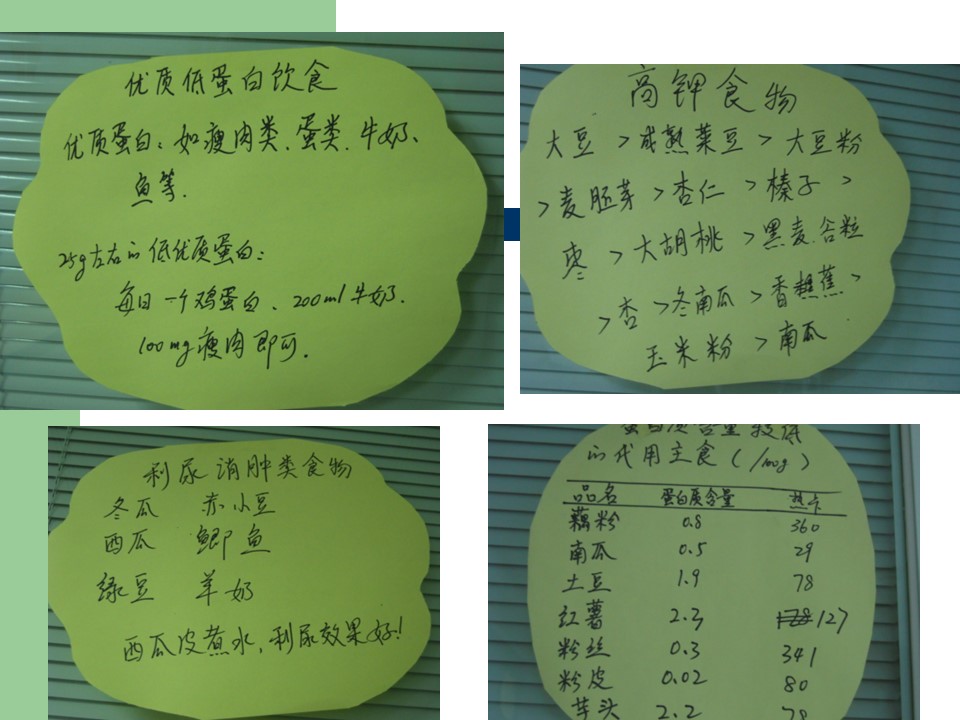 优质低蛋白饮食
优质蛋白：如瘦肉类、蛋类、牛奶、
鱼等.
25g左右的低优质蛋白：
每日一个鸡蛋白、200ml牛奶.
100mg瘦肉即可.
高钾食物
大豆 > 成熟菜豆 > 大豆粉
> 麦胚芽 > 杏仁 > 榛子 >
枣 > 大胡桃 > 黑麦谷粒
> 杏 > 冬南瓜 > 香蕉 >
玉米粉 > 南瓜
利尿消肿类食物
冬瓜 赤小豆
西瓜 鲫鱼
绿豆 羊奶
西瓜皮煮水，利尿效果好！
蛋白质含量较低
的代用主食(/100g)
品名 蛋白质含量 热卡
藕粉 0.8 360
南瓜 0.5 29
土豆 1.9 78
红薯 2.3 127
粉丝 0.3 341
粉皮 0.02 80
芋头 2.2 78